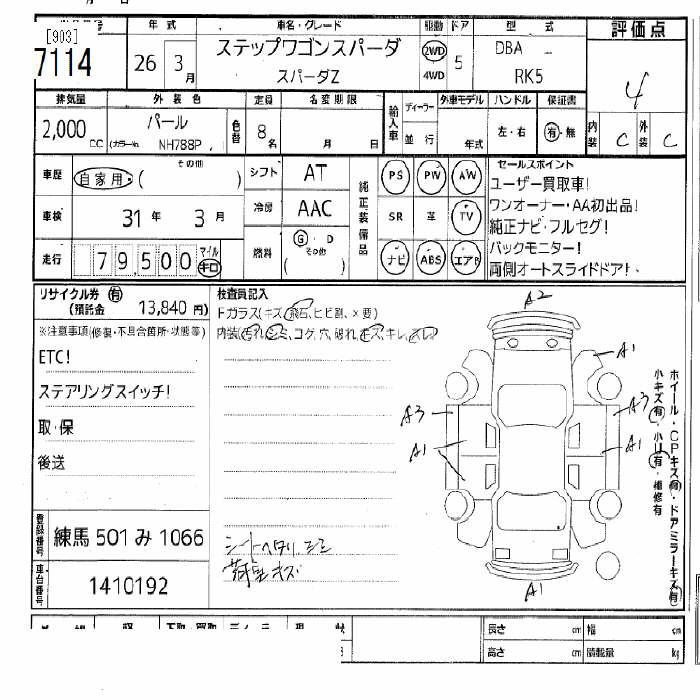 [903]
7114
年式
車名・グレード
駆動
ドア
型式
評価点
26年 3月
ステップワゴンスパーダ
スパーダZ
2WD
4WD
5
DBA －
RK5
4
排気量
外装色
定員
名変期限
輸入車
ディーラー
並行
外車モデル
ハンドル
保証書
2,000 CC
パール
(カラーNo. NH788P )
色替
8名
月 日
年式
左・右
有・無
内装 C
外装 C
車歴
自家用・( その他 )
シフト
AT
純正装備品
PS PW AW
セールスポイント
ユーザー買取車!
ワンオーナー・AA初出品!
純正ナビ・フルセグ!
バックモニター!
両側オートスライドドア!
車検
31年 3月
冷房
AAC
SR 革 TV
走行
79,500
マイル
キロ
燃料
G・D
その他
( )
ナビ ABS エアB
リサイクル券 有
(預託金 13,840 円)
検査員記入
Fガラス(キズ、飛石、ヒビ割、×要)
内装(汚れ、シミ、コゲ、穴、破れ、キズ、キレ、スレ)
※注意事項(修復・不具合箇所・状態等)
ETC!
ステアリングスイッチ!
取・保
後送
A2
A1
A1
A3
A3
A1
A1
A1
ホイール・CPキズ有・ドアミラーキズ有
小キズ有・小U有・補修有
シートヘタリ、シミ
荷室キズ
登録番号
練馬 501 み 1066
車台番号
1410192
長さ cm
幅 cm
高さ cm
積載量 kg